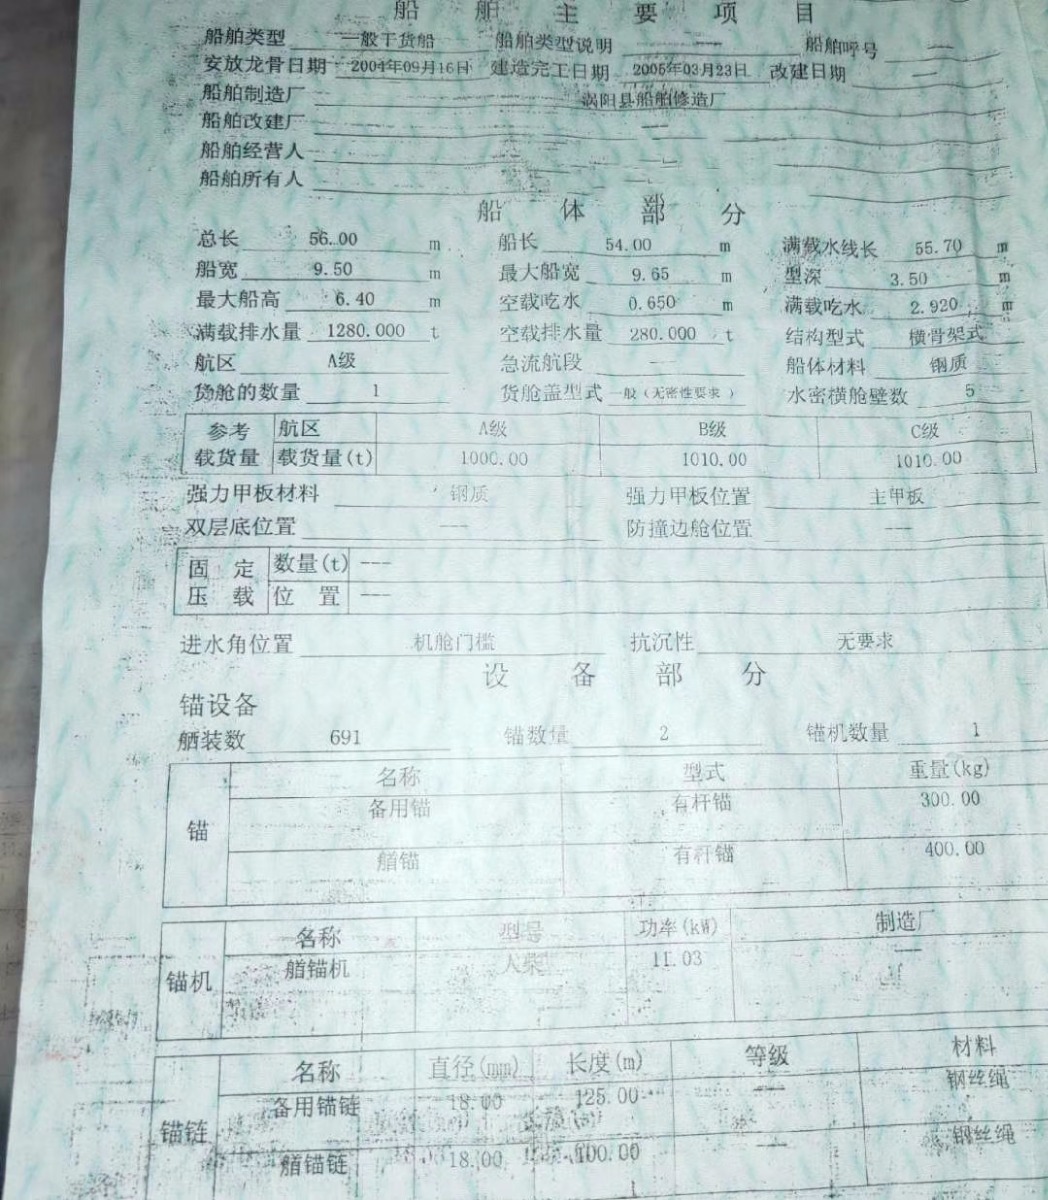 船舶主要项目
船舶类型 一般干货船 船舶类型说明 —— 船舶呼号 ——
安放龙骨日期 2004年09月16日 建造完工日期 2005年03月23日 改建日期 ——
船舶制造厂 涡阳县船舶修造厂
船舶改建厂 ——
船舶经营人 ——
船舶所有人
船体部分
总长 56.00 m 船长 54.00 m 满载水线长 55.70 m
船宽 9.50 m 最大船宽 9.65 m 型深 3.50 m
最大船高 6.40 m 空载吃水 0.650 m 满载吃水 2.920 m
满载排水量 1280.000 t 空载排水量 280.000 t 结构型式 横骨架式
航区 A级 急流航段 — 船体材料 钢质
货舱的数量 1 货舱盖型式 一般(无密性要求) 水密横舱壁数 5
参考 航区 A级 B级 C级
载货量 载货量(t) 1000.00 1010.00 1010.00
强力甲板材料 钢质 强力甲板位置 主甲板
双层底位置 --- 防撞边舱位置 ---
固定 数量(t) ---
压载 位置 ---
进水角位置 机舱门槛 抗沉性 无要求
设备部分
锚设备
舾装数 691 锚数量 2 锚机数量 1
名称 型式 重量(kg)
备用锚 有杆锚 300.00
锚
艏锚 有杆锚 400.00
名称 型号 功率(kW) 制造厂
锚机 艏锚机 人柴 11.03 ——
名称 直径(mm) 长度(m) 等级 材料
备用锚链 18.00 125.00 —— 钢丝绳
锚链
艏锚链 18.00 100.00 —— 钢丝绳